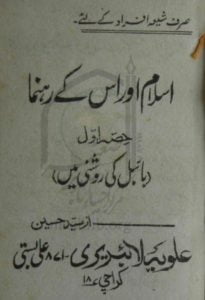 صرف شیعہ افراد کے لئے۔
اسلام اور اس کے رہنما
حصہ اول
(بائبل کی روشنی میں)
از سید حسین
علویہ لائبریری - ۸۷۱ علی بستی
کراچی ۱۸